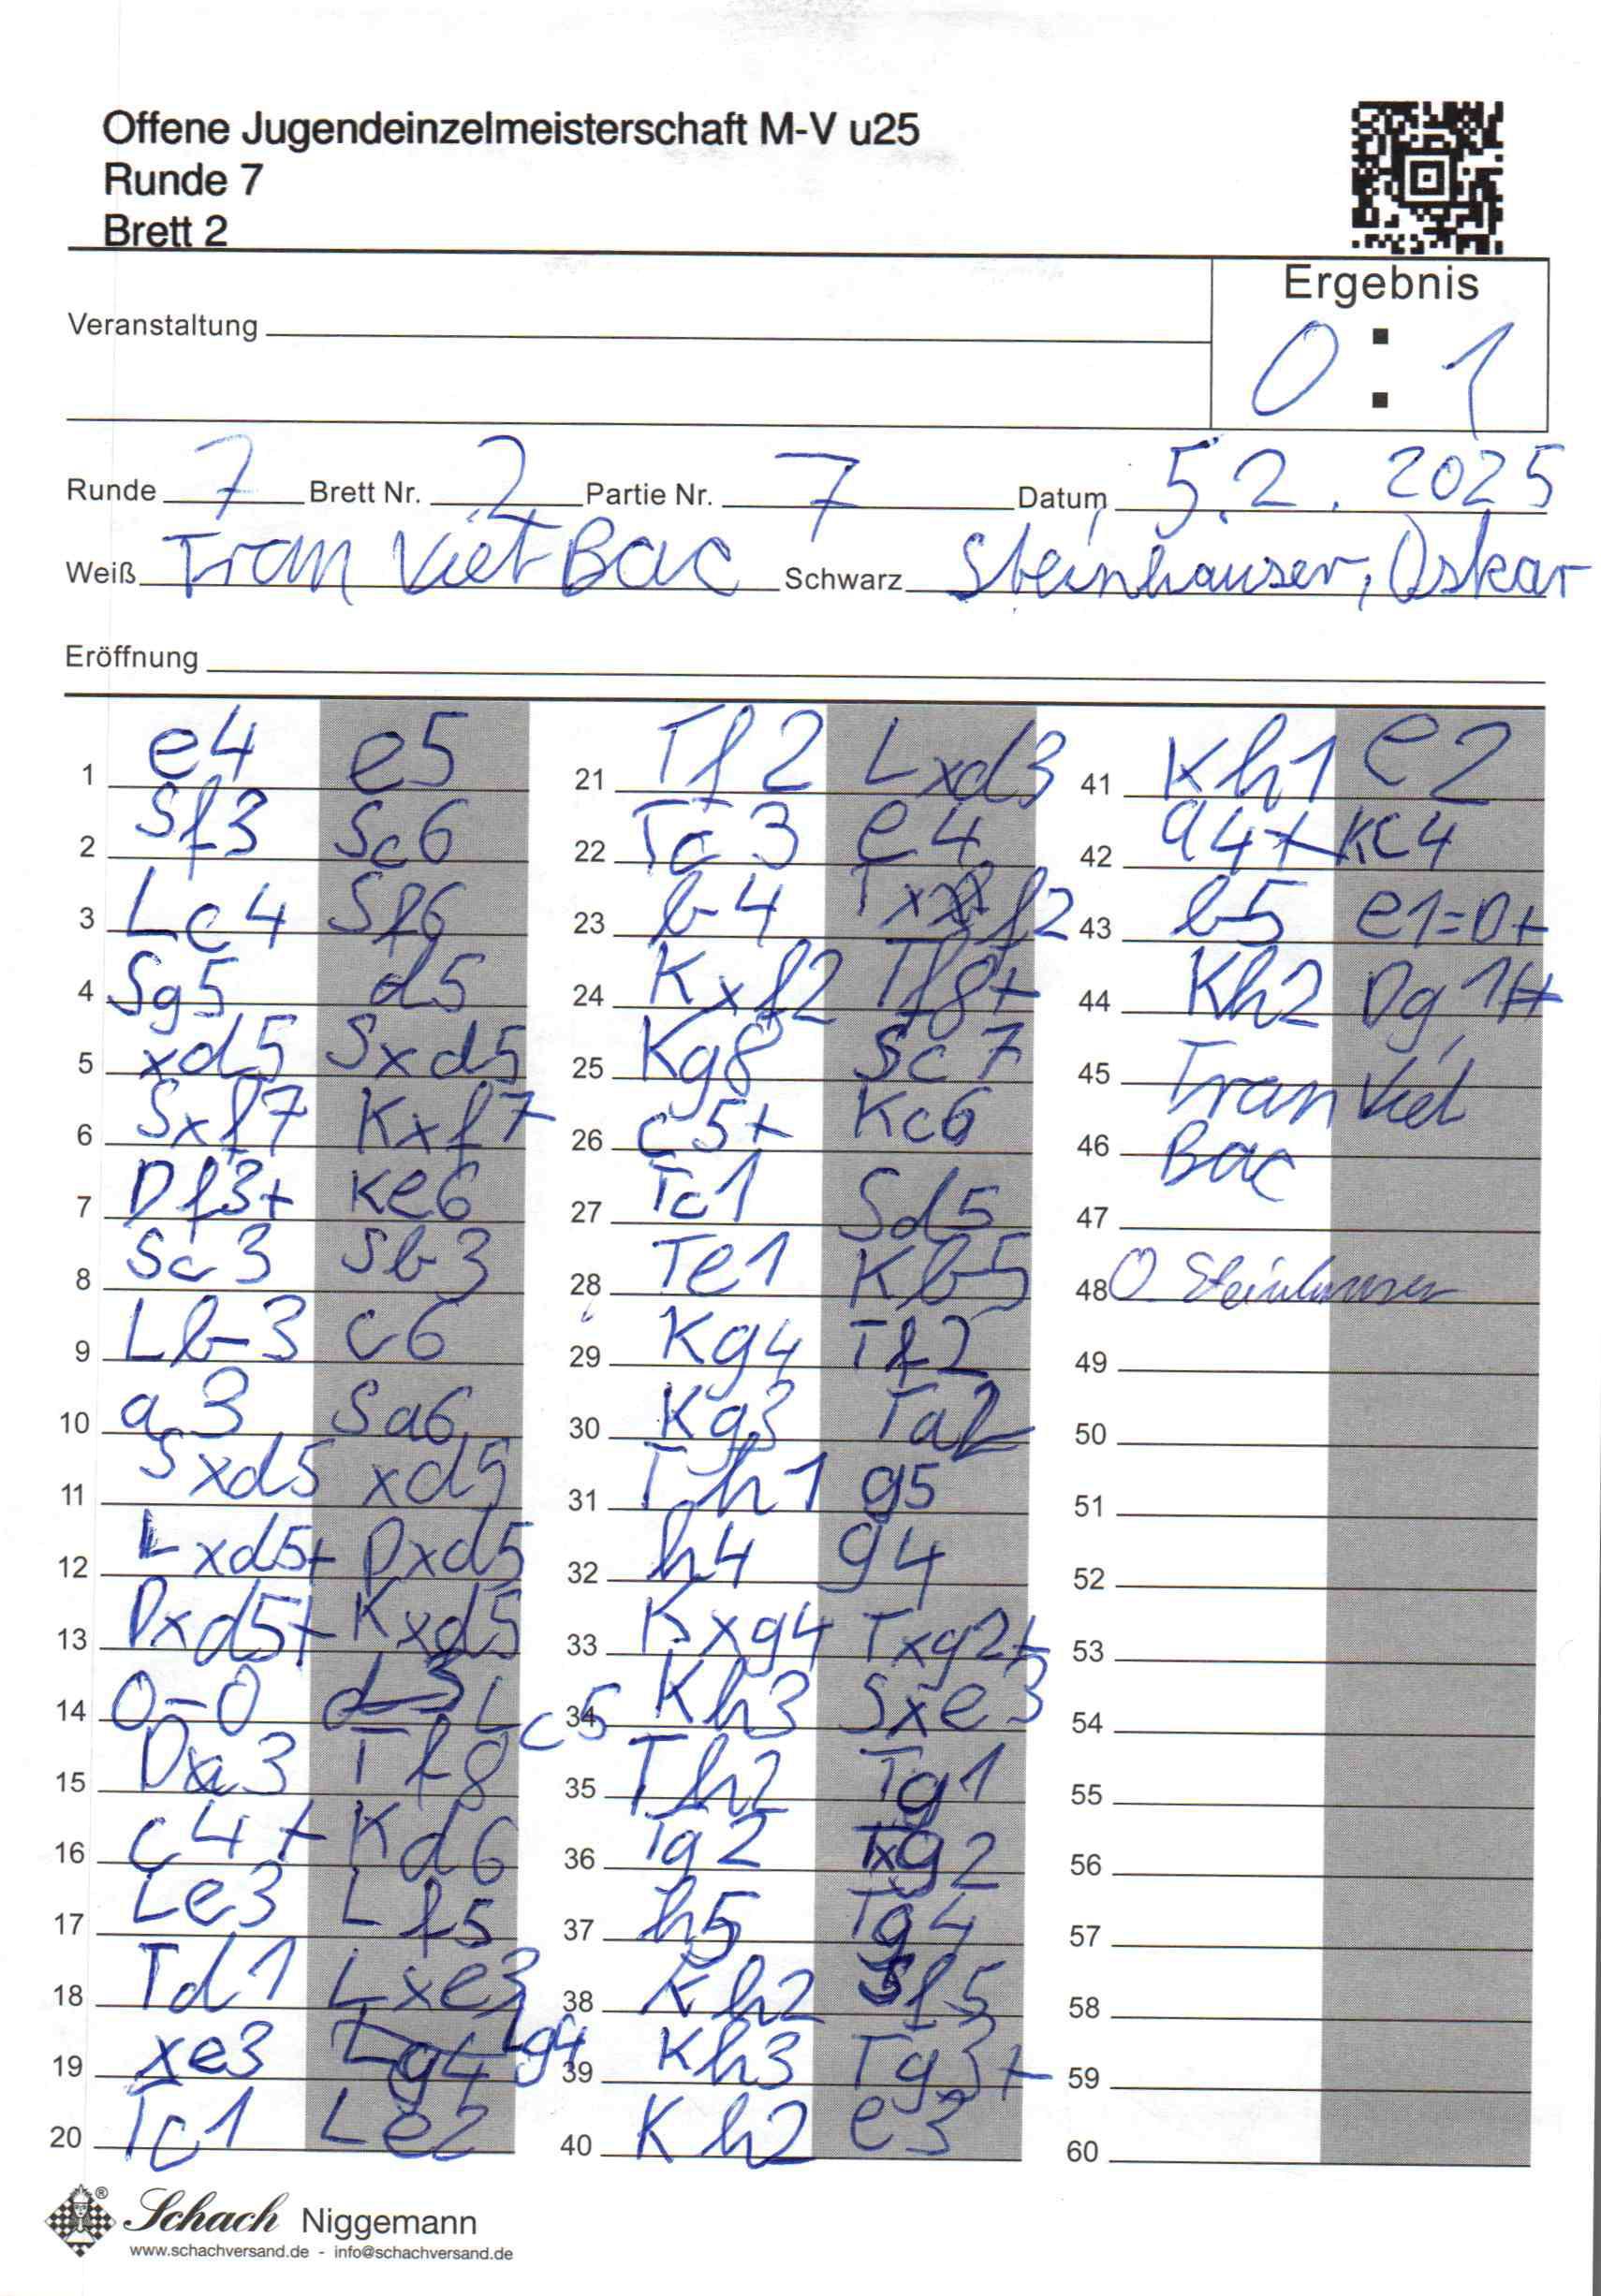 Offene Jugendeinzelmeisterschaft M-V u25
Runde 7
Brett 2
Ergebnis
0 : 1
Veranstaltung
Runde 7 Brett Nr. 2 Partie Nr. 7 Datum 5.2.2025
Weiß Tran Viet Bac Schwarz Steinhäuser, Oskar
Eröffnung
1 e4 e5
2 Sf3 Sc6
3 Lc4 Sf6
4 Sg5 d5
5 xd5 Sxd5
6 Sxf7 Kxf7
7 Df3+ Ke6
8 Sc3 Sb3
9 Lb3 c6
10 a3 Sa6
11 Sxd5 xd5
12 Lxd5+ Dxd5
13 Dxd5+ Kxd5
14 0-0 Lc5
15 Da3 Tf8
16 c4+ Kd6
17 Le3 Lf5
18 Td1 Lxe3
19 xe3 Lg4 Lg4
20 Tc1 Le2
21 Tf2 Lxd3
22 Tc3 e4
23 b4 Txf2
24 Kxf2 Tf8+
25 Kg8 Sc7
26 c5+ Kc6
27 Tc1 Sd5
28 Te1 Kb5
29 Kg4 Tf2
30 Kg3 Ta2
31 Th1 g5
32 h4 g4
33 Kxg4 Txg2+
34 Kh3 Sxe3
35 Th2 Tg1
36 Tg2 Txg2
37 h5 Tg4
38 Kh2 Sf5
39 Kh3 Tg3+
40 Kh2 e3
41 Kh1 e2
42 a4+ Kc4
43 b5 e1=D+
44 Kh2 Dg1#
45 Tran Viet
46 Bac
47
48 O. Steinhäuser
49
50
51
52
53
54
55
56
57
58
59
60
Schach Niggemann
www.schachversand.de - info@schachversand.de